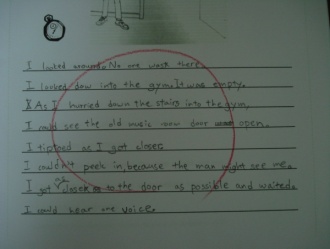 9
I looked around. No one was there.
I looked down into the gym. It was empty.
As I hurried down the stairs into the gym,
I could see the old music room door open.
I tiptoed as I got closer
I couldn't peek in, because the man might me.
I got as closer to the door as possible and waited.
I could hear one voice.